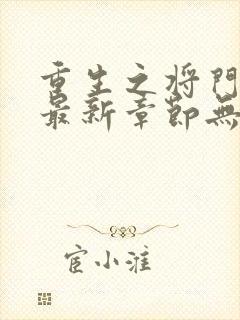 重生之将門
最新章節無
宦小淮